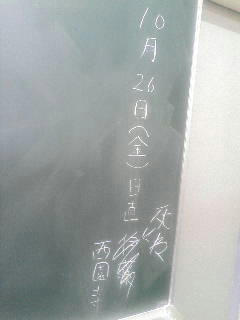 10月26日(金)日直
西園寺